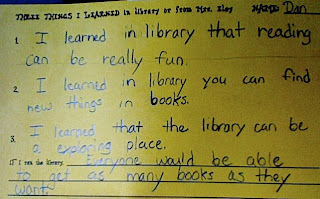 THREE THINGS I LEARNED in library or from Mrs. Eley NAME Dan
1. I learned in library that reading
can be really fun.
2. I learned in library you can find
new things in books.
3. I learned that the library can be
a exploring place.
If I ran the library, Everyone would be able
to get as many books as they
want.